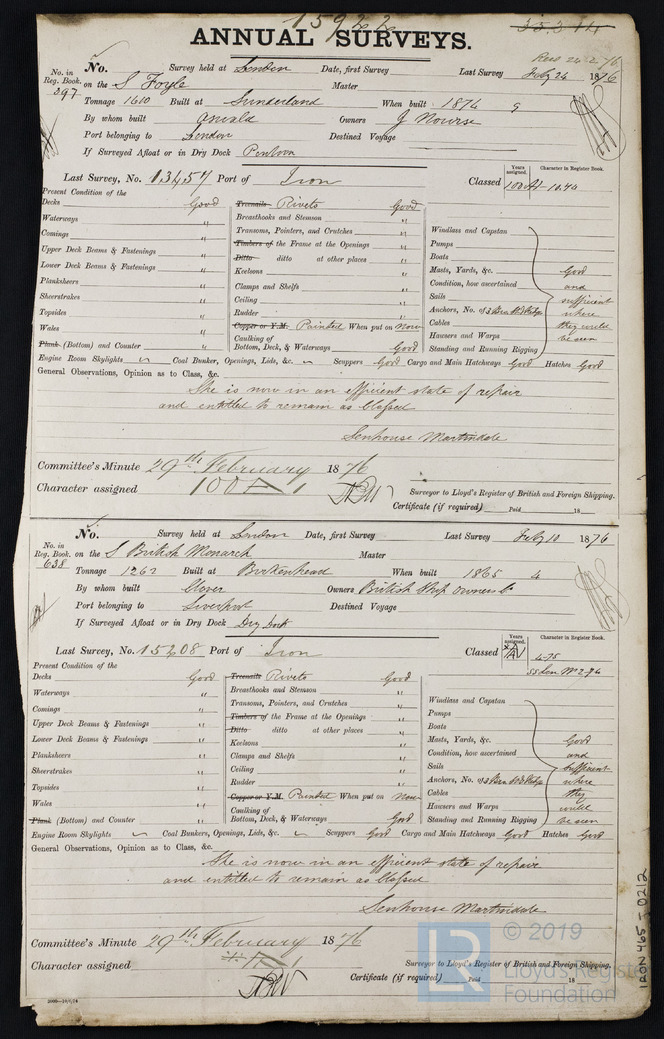 15922
ANNUAL SURVEYS.
Rec 24-2-76
No. Survey held at London Date, first Survey Last Survey Feby 24 1876
No. in Reg. Book. 397 on the S Foyle Master
Tonnage 1610 Built at Sunderland When built 1874 9
By whom built Oswald Owners J Nourse
Port belonging to London Destined Voyage
If Surveyed Afloat or in Dry Dock
Last Survey, No. 13457 Port of Iron Classed
Years assigned. Character in Register Book.
100A1
Present Condition of the
Decks Good
Waterways "
Comings "
Upper Deck Beams & Fastenings "
Lower Deck Beams & Fastenings "
Planksheers "
Sheerstrakes "
Topsides "
Wales "
Plank (Bottom) and Counter "
Treenails Rivets Good
Breasthooks and Stemson "
Transoms, Pointers, and Crutches "
Timbers of the Frame at the Openings "
Ditto ditto at other places "
Keelsons "
Clamps and Shelfs "
Ceiling "
Rudder "
Copper or Y.M. Painted When put on now
Caulking of Bottom, Deck, & Waterways Good
Windlass and Capstan
Pumps
Boats
Masts, Yards, &c. Good
Condition, how ascertained and
Sails sufficient
Anchors, No. of where
Cables they could
Hawsers and Warps be seen
Standing and Running Rigging
Engine Room Skylights Coal Bunker, Openings, Lids, &c. Scuppers Good Cargo and Main Hatchways Good Hatches Good
General Observations, Opinion as to Class, &c.
She is now in an efficient state of repair
and entitled to remain as Classed
Senhouse Martindale
Committee's Minute 29th February 1876
Character assigned 100A1
Surveyor to Lloyd's Register of British and Foreign Shipping.
Certificate (if required) Paid 18
No. Survey held at London Date, first Survey Last Survey Feby 10 1876
No. in Reg. Book. 638 on the S British Monarch Master
Tonnage 1262 Built at Birkenhead When built 1865 4
By whom built Clover Owners British Ship Owners Co
Port belonging to Liverpool Destined Voyage
If Surveyed Afloat or in Dry Dock Dry Dock
Last Survey, No. 15208 Port of Iron Classed
Years assigned. Character in Register Book.
4-75
Present Condition of the
Decks Good
Waterways "
Comings "
Upper Deck Beams & Fastenings "
Lower Deck Beams & Fastenings "
Planksheers "
Sheerstrakes "
Topsides "
Wales "
Plank (Bottom) and Counter "
Treenails Rivets Good
Breasthooks and Stemson "
Transoms, Pointers, and Crutches "
Timbers of the Frame at the Openings "
Ditto ditto at other places "
Keelsons "
Clamps and Shelfs "
Ceiling "
Rudder "
Copper or Y.M. Painted When put on now
Caulking of Bottom, Deck, & Waterways Good
Windlass and Capstan
Pumps
Boats
Masts, Yards, &c. Good
Condition, how ascertained and
Sails sufficient
Anchors, No. of where
Cables they
Hawsers and Warps could
Standing and Running Rigging be seen
Engine Room Skylights Coal Bunkers, Openings, Lids, &c. Scuppers Good Cargo and Main Hatchways Good Hatches Good
General Observations, Opinion as to Class, &c.
She is now in an efficient state of repair
and entitled to remain as Classed
Senhouse Martindale
Committee's Minute 29th February 1876
Character assigned
Surveyor to Lloyd's Register of British and Foreign Shipping.
Certificate (if required) Paid 18
IRON 465 I 0212
LR © 2019
Lloyd's Register
Foundation